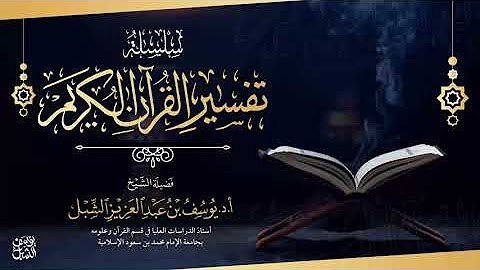 سِلْسِلَةُ
تفسير القرآن الكريم
فضيلة الشيخ
أ.د. يوسف بن عبد العزيز الشبل
أستاذ الدراسات العليا في قسم القرآن وعلومه
بجامعة الإمام محمد بن سعود الإسلامية